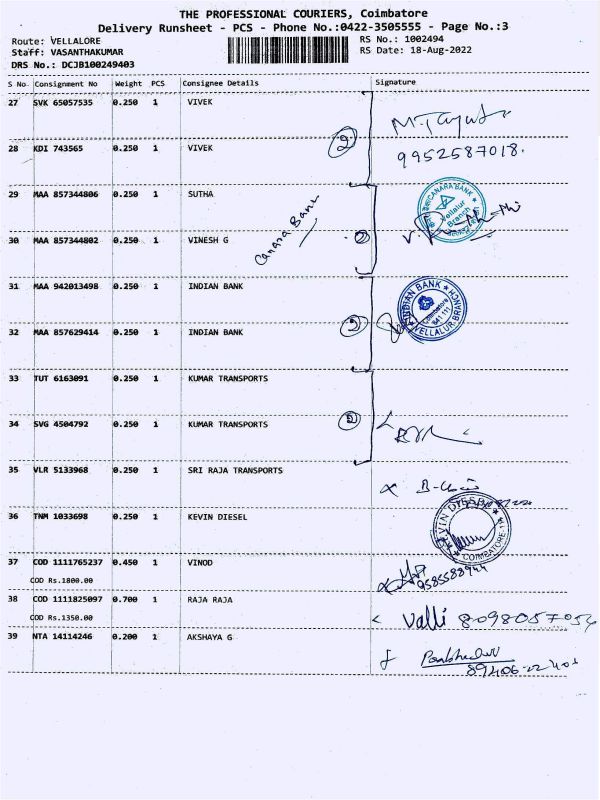 THE PROFESSIONAL COURIERS, Coimbatore
Delivery Runsheet - PCS - Phone No.:0422-3505555 - Page No.:3
Route: VELLALORE RS No.: 1002494
Staff: VASANTHAKUMAR RS Date: 18-Aug-2022
DRS No.: DCJB100249403
S No Consignment No Weight PCS Consignee Details Signature
27 SVK 65057535 0.250 1 VIVEK
28 KDI 743565 0.250 1 VIVEK 2 9952587018.
29 MAA 857344806 0.250 1 SUTHA CANARA BANK Vellalur Branch
Canara Bank
30 MAA 857344802 0.250 1 VINESH G 2
31 MAA 942013498 0.250 1 INDIAN BANK INDIAN BANK Coimbatore 641 111 VELLALUR BRANCH
32 MAA 857629414 0.250 1 INDIAN BANK 2
33 TUT 6163091 0.250 1 KUMAR TRANSPORTS
34 SVG 4504792 0.250 1 KUMAR TRANSPORTS 2
35 VLR 5133968 0.250 1 SRI RAJA TRANSPORTS
36 TNM 1033698 0.250 1 KEVIN DIESEL KEVIN DIESEL COIMBATORE
37 COD 1111765237 0.450 1 VINOD 9585588944
COD Rs.1800.00
38 COD 1111825097 0.700 1 RAJA RAJA Valli 8098057054
COD Rs.1350.00
39 NTA 14114246 0.200 1 AKSHAYA G